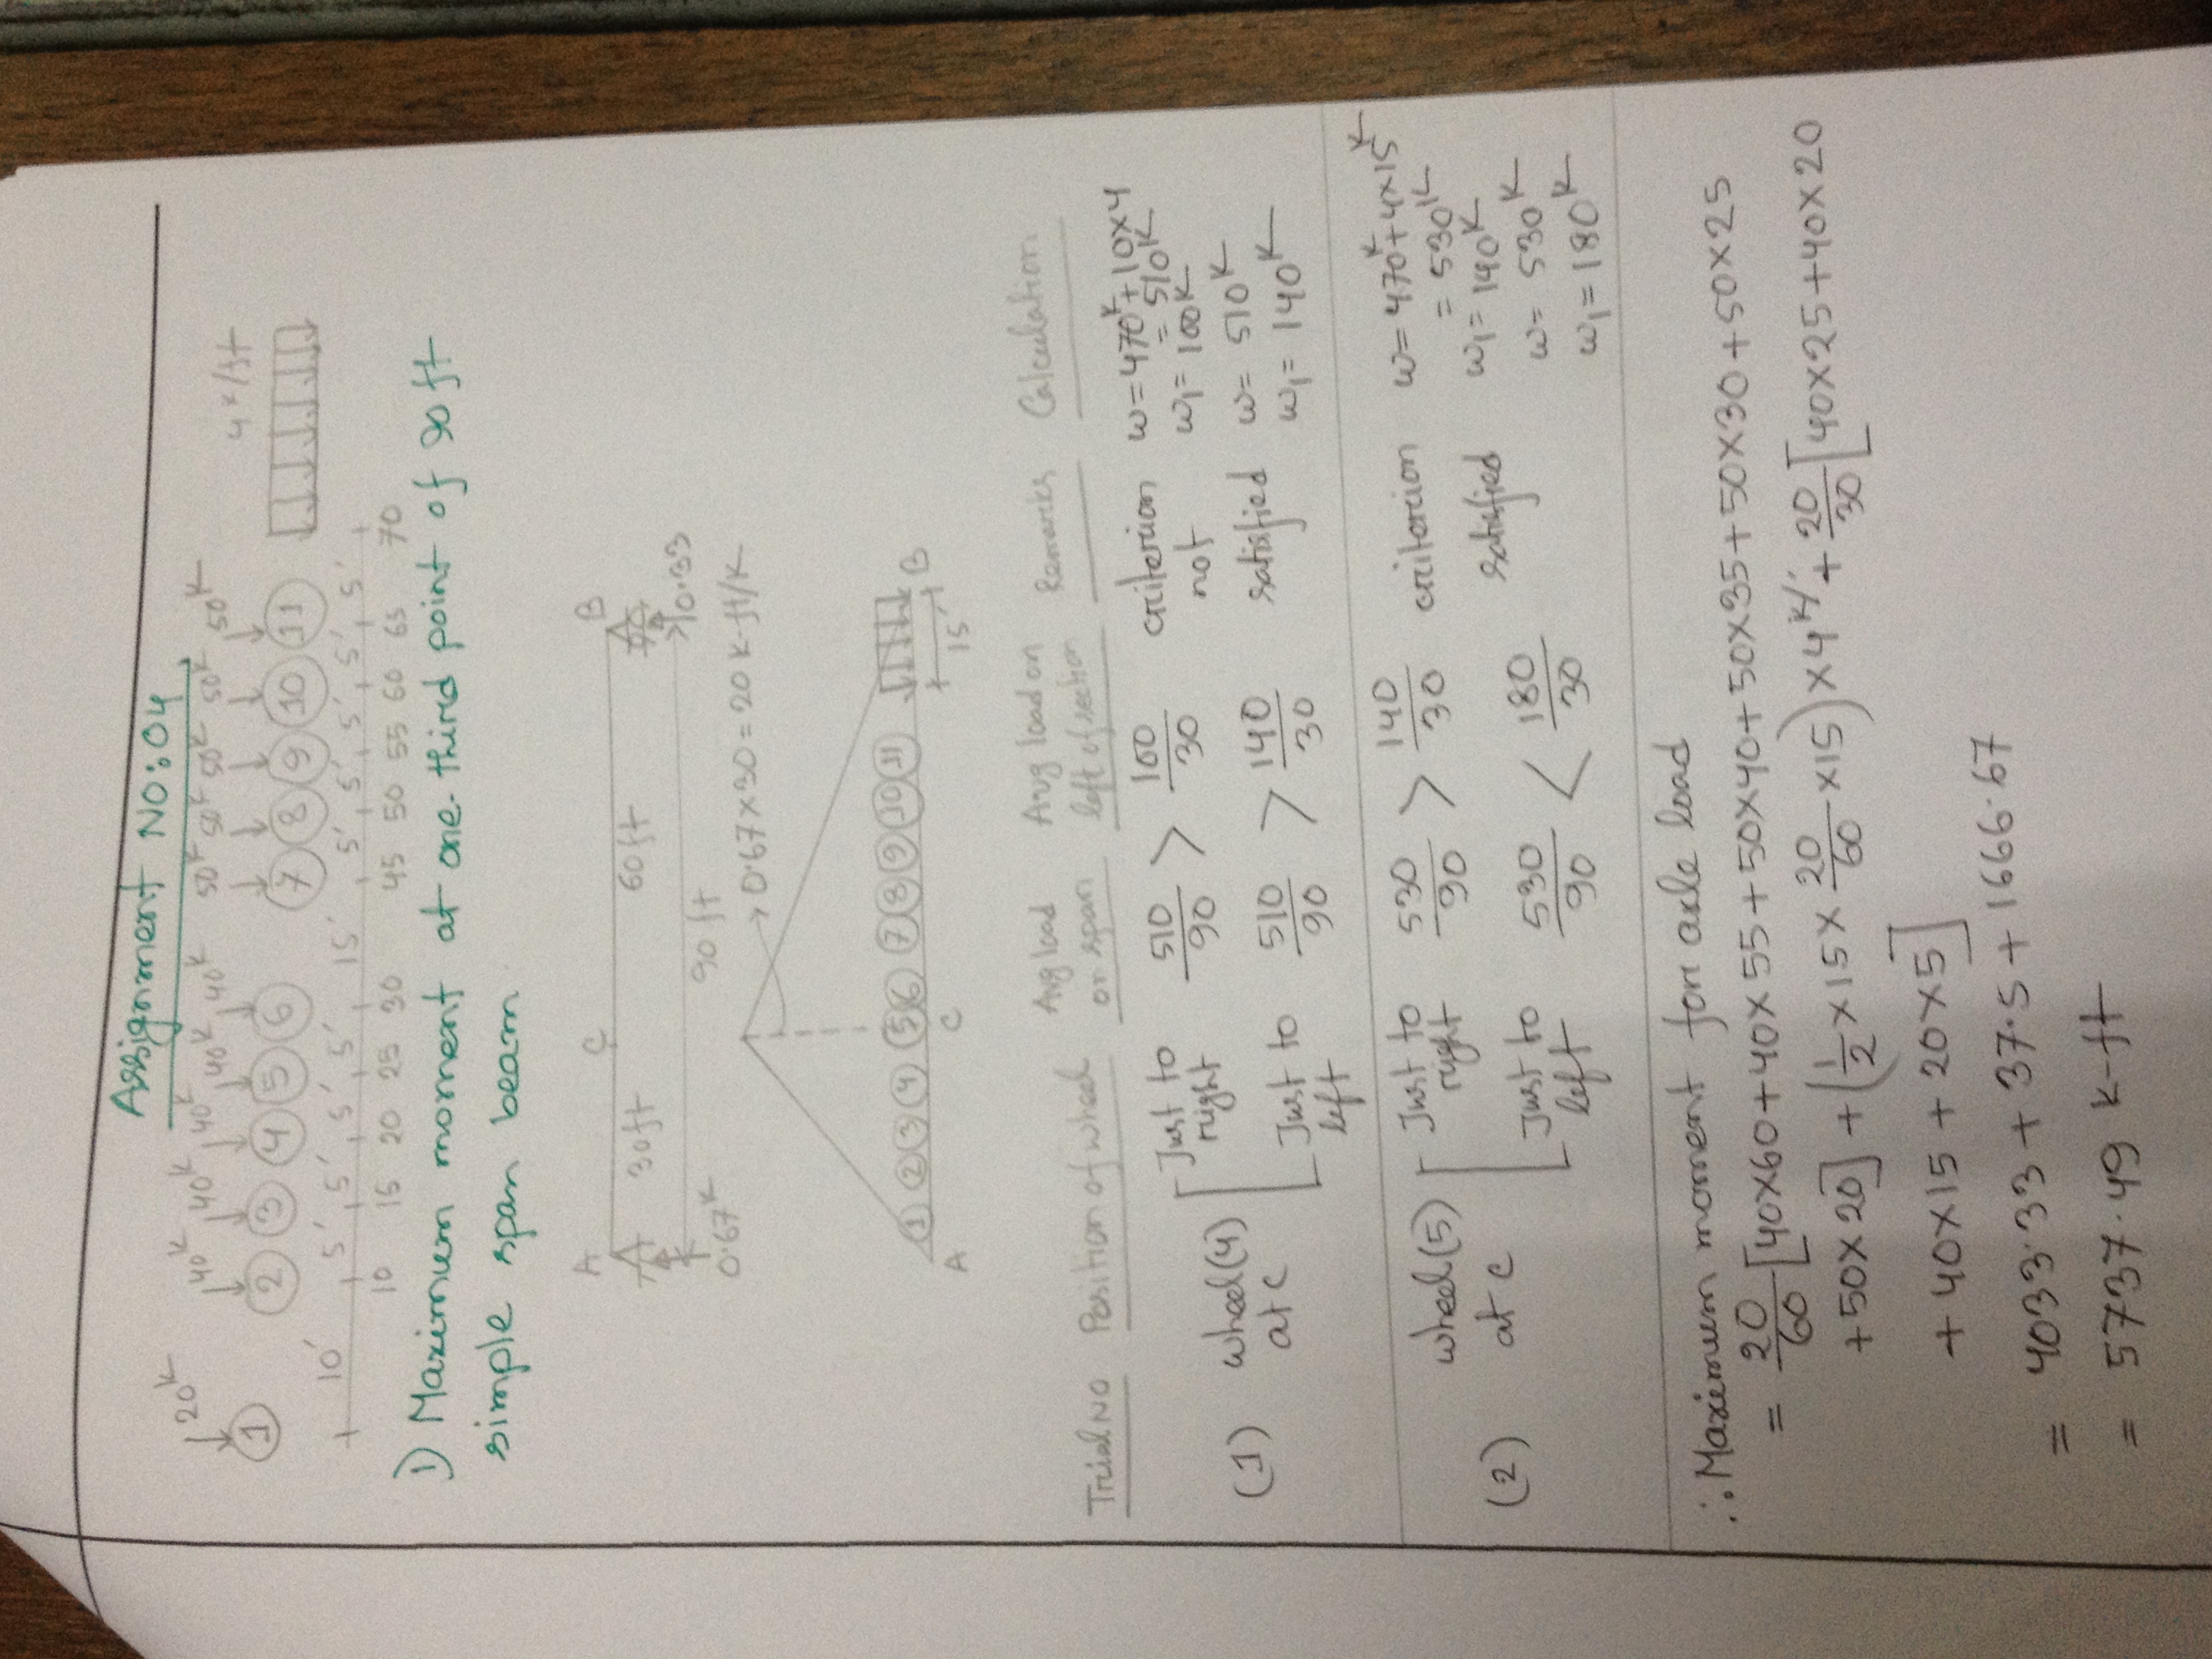 Assignment NO:04
20K 40K 40K 40K 40K 40K 50K 50K 50K 50K 50K 4K/ft
1 2 3 4 5 6 7 8 9 10 11
10' 5' 5' 5' 5' 15' 5' 5' 5' 5' 5'
10 15 20 25 30 45 50 55 60 65 70
1) Maximum moment at one-third point of 90 ft
simple span beam.
A C B
30ft 60ft
90 ft
0.67K 0.33
0.67×30=20 K-ft/K
1 2 3 4 5 6 7 8 9 10 11
A C B
15'
Trial NO Position of wheel Avg load on span Avg load on left of section Remarks Calculation
(1) wheel(4) at C
Just to right 510/90 > 100/30 criterion not satisfied w=470K+10×4 = 510K
w1=100K
Just to left 510/90 > 140/30 w= 510K
w1= 140K
(2) wheel(5) at C
Just to right 530/90 > 140/30 criterion satisfied w=470K+4×15K
= 530K
w1=140K
Just to left 530/90 < 180/30 w= 530K
w1=180K
∴ Maximum moment for axle load
= 20/60 [40×60+40×55+50×40+50×35+50×30+50×25
+50×20] + (1/2×15×20/60×15)×4K/' + 20/30 [40×25+40×20
+40×15+20×5]
= 4033.33+37.5+1666.67
= 5737.49 K-ft